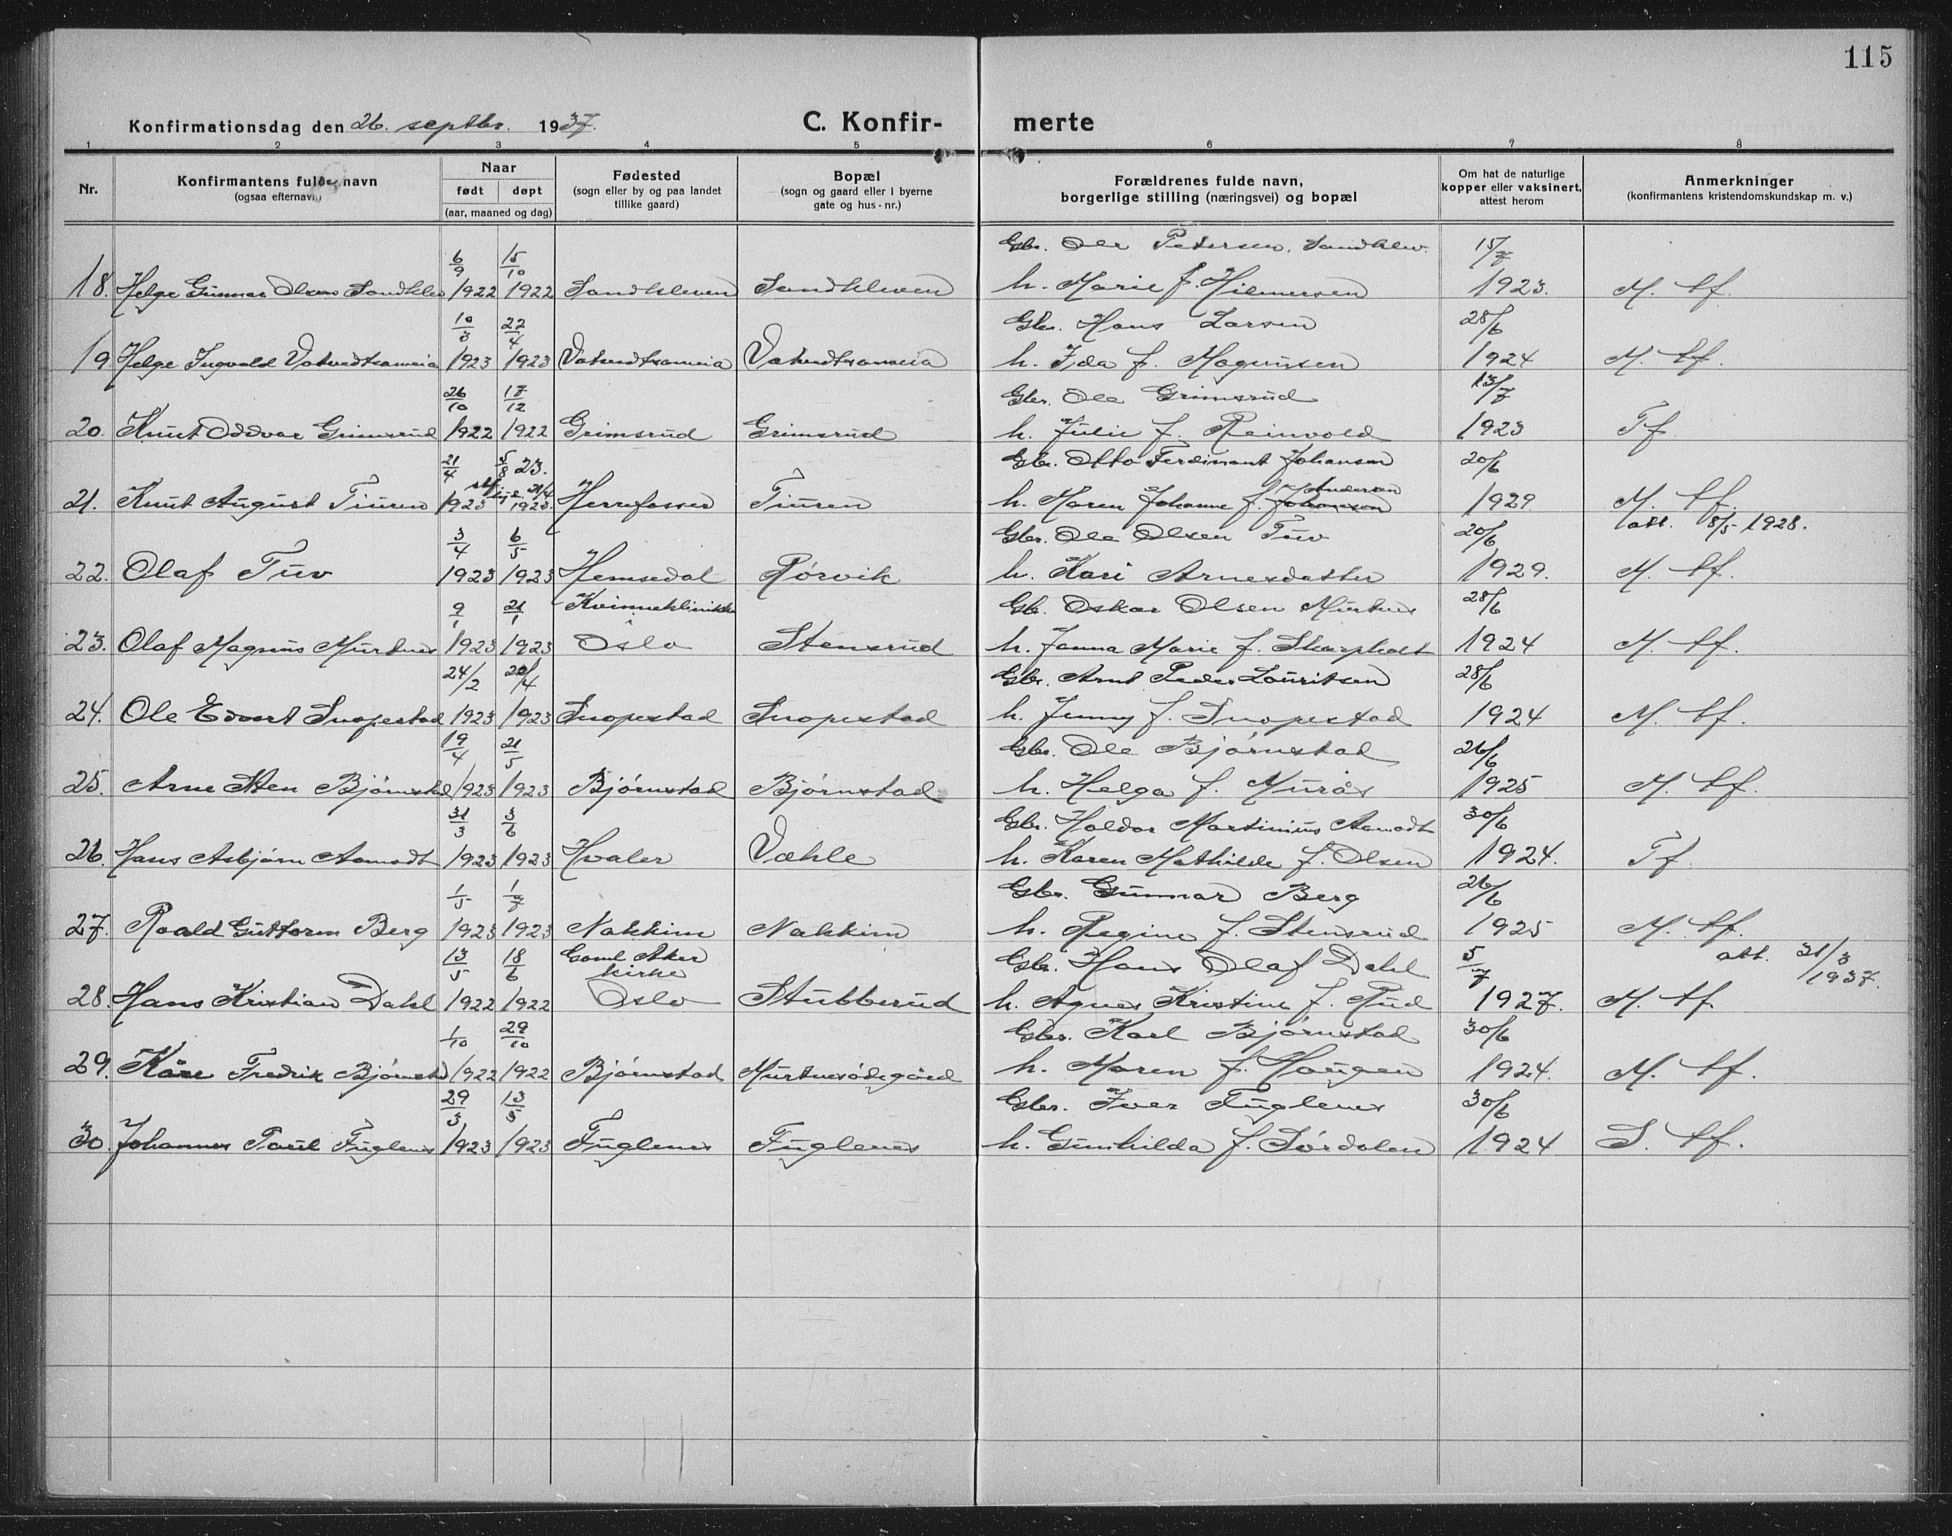 115
Konfirmationsdag den 26. septbr. 1937. C. Konfir- merte
1 2 3 4 5 6 7 8
Nr. Konfirmantens fulde navn (ogsaa efternavn) Naar født døpt (aar, maaned og dag) Fødested (sogn eller by og paa landet tillike gaard) Bopæl (sogn og gaard eller i byerne gate og hus-nr.) Forældrenes fulde navn, borgerlige stilling (næringsvei) og bopæl Om hat de naturlige kopper eller vaksinert, attest herom Anmerkninger (konfirmantens kristendomskundskap m. v.)
6/9 15/10 Gbr. Ole Petersen Sandklev. 15/7
18. Helge Gunnar Olsen Sandklev 1922 1922 Sandkleven Sandkleven h. Marie f. Hilmersen 1923. M. tf.
10/3 22/4 Gbr. Hans Larsen 28/6
19. Helge Ingvald Vatvedtsameia 1923 1923 Vatvedtsameia Vatvedtsameia h. Ida f. Magnussen 1924 M. tf.
26/10 17/12 Gbr. Ole Grimsrud 13/7
20. Knut Oddvar Grimsrud 1922 1922 Grimsrud Grimsrud h. Julie f. Reinvold 1923 Tf.
21/4 5/8 23. Gbr. Otto Ferdinant Johansen 20/6
21. Knut August Tiuren 1923 1923 Herrefosser Tiuren h. Maren Johanne f. Johansson Andersen 1929 M. tf.
3/4 6/5 Gbr. Ole Olsen Tuv 20/6 att. 8/5 1928.
22. Olaf Tuv 1923 1923 Hemsedal Rørvik h. Kari Arnesdatter 1929. M. tf.
9/1 21/1 Kvinneklinikken Gbr. Oskar Olsen Murtnes 28/6
23. Olaf Magnus Murtnes 1923 1923 Oslo Stensrud h. Janna Marie f. Skarpholt 1924 M. tf.
24/2 22/4 Gbr. Arnt Peder Lauritsen 28/6
24. Ole Edvart Snopestad 1923 1923 Snopestad Snopestad h. Jenny f. Snopestad 1924 M. tf.
19/4 21/5 Gbr. Ole Bjørnstad 26/6
25. Arne Sten Bjørnstad 1923 1923 Bjørnstad Bjørnstad h. Helga f. Murås 1925 M. tf.
31/3 3/6 Gbr. Haldor Martinius Aamodt 30/6
26. Hans Asbjørn Aamodt 1923 1923 Hvaler Væhle h. Karen Mathilde f. Olsen 1924. Tf.
1/5 1/7 Gbr. Gunnar Berg 26/6
27. Roald Guttorm Berg 1923 1923 Nakkim Nakkim h. Regine f. Stensrud 1925 M. tf.
13/5 18/6 Gaml. Aker kirke Gbr. Hans Olaf Dahl 5/7 att. 31/3 1937.
28. Hans Kristian Dahl 1922 1922 Oslo Stubberud h. Agnes Kristine f. Rud 1927. M. tf.
1/10 29/10 Gbr. Karl Bjørnstad 30/6
29. Kåre Fredrik Bjørnstd 1922 1922 Bjørnstad Murtnesødegård h. Maren f. Haugen 1924. M. tf.
29/3 13/5 Gbr. Iver Fuglenes 30/6
30. Johannes Paul Fuglenes 1923 1923 Fuglenes Fuglenes h. Gunhilda f. Sørdalen 1924 S. tf.